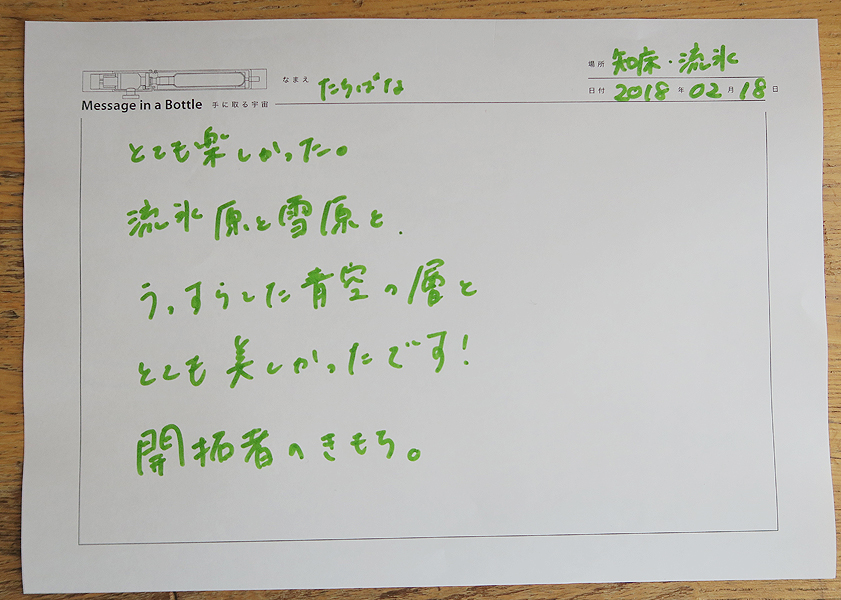 場所 知床・流氷
なまえ たちばな
Message in a Bottle 手に取る宇宙
日付 2018年02月18日
とても楽しかった。
流氷原と雪原と、
うっすらした青空の層と
とても美しかったです!
開拓者のきもち。